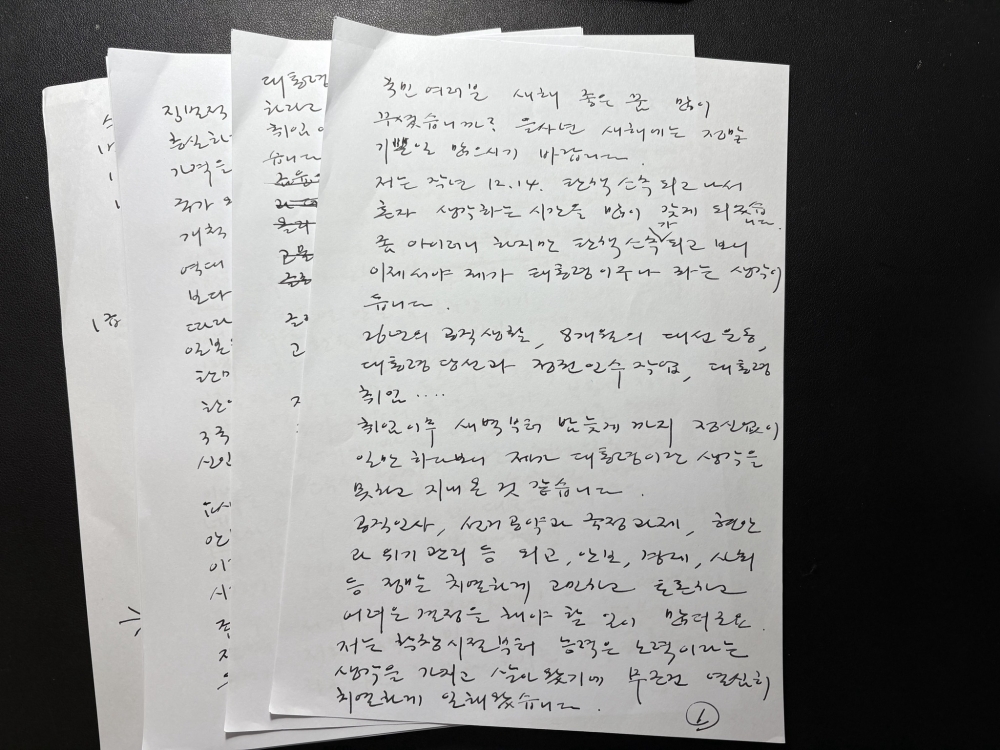 국민 여러분 새해 좋은 꿈 많이
꾸셨습니까? 을사년 새해에는 정말
기쁜일 많으시기 바랍니다.
저는 작년 12.14. 탄핵 소추 되고 나서
혼자 생각하는 시간을 많이 갖게 되었습니다.
좀 아이러니 하지만 탄핵 소추가 되고 보니
이제서야 제가 대통령이구나 하는 생각이
듭니다.
26년의 공직생활, 8개월의 대선 운동,
대통령 당선과 정권 인수 작업, 대통령
취임 ....
취임이후 새벽부터 밤늦게 까지 정신없이
일만 하다보니 제가 대통령이란 생각을
못하고 지내 온 것 같습니다.
공직인사, 선거 공약과 국정과제, 현안
과 위기 관리 등 외교, 안보, 경제, 사회
등 정말 치열하게 고민하고 토론하고
어려운 결정을 해야 할 일이 많더군요.
저는 학창시절부터 능력은 노력이라는
생각을 가지고 살아 왔기에 무조건 열심히
치열하게 일해왔습니다.
1
대통령
하라고
취임
습니다
고
직무적
충실하
가격은
국가
개척
역대
보다
따라
일본
한미
3국